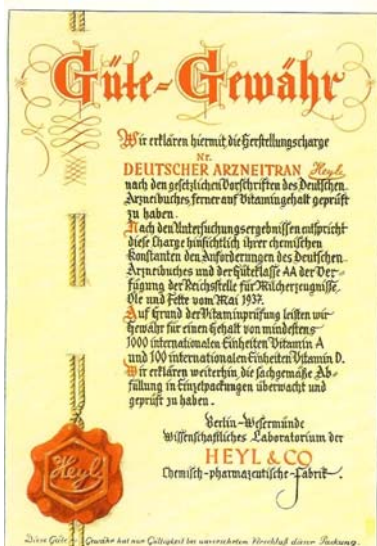 Güte-Gewähr
Wir erklären hiermit die Herstellungscharge
Nr.
DEUTSCHER ARZNEITRAN Heyl
nach den gesetzlichen Vorschriften des Deutschen
Arzneibuches, ferner auf Vitamingehalt geprüft
zu haben.
Nach den Untersuchungsergebnissen entspricht
diese Charge hinsichtlich ihrer chemischen
Konstanten den Anforderungen des Deutschen
Arzneibuches und der Güteklasse AA der Ver-
fügung der Reichsstelle für Milcherzeugnisse,
Öle und Fette vom Mai 1937.
Auf Grund der Vitaminprüfung leisten wir
Gewähr für einen Gehalt von mindestens
1000 internationalen Einheiten Vitamin A
und 100 internationalen Einheiten Vitamin D.
Wir erklären weiterhin, die sachgemäße Ab-
füllung in Einzelpackungen überwacht und
geprüft zu haben.
Berlin-Wesermünde
Wissenschaftliches Laboratorium der
HEYL & CO
Chemisch-pharmazeutische-Fabrik.
Heyl
Diese Güte-Gewähr hat nur Gültigkeit bei unversehrtem Verschluß dieser Packung.